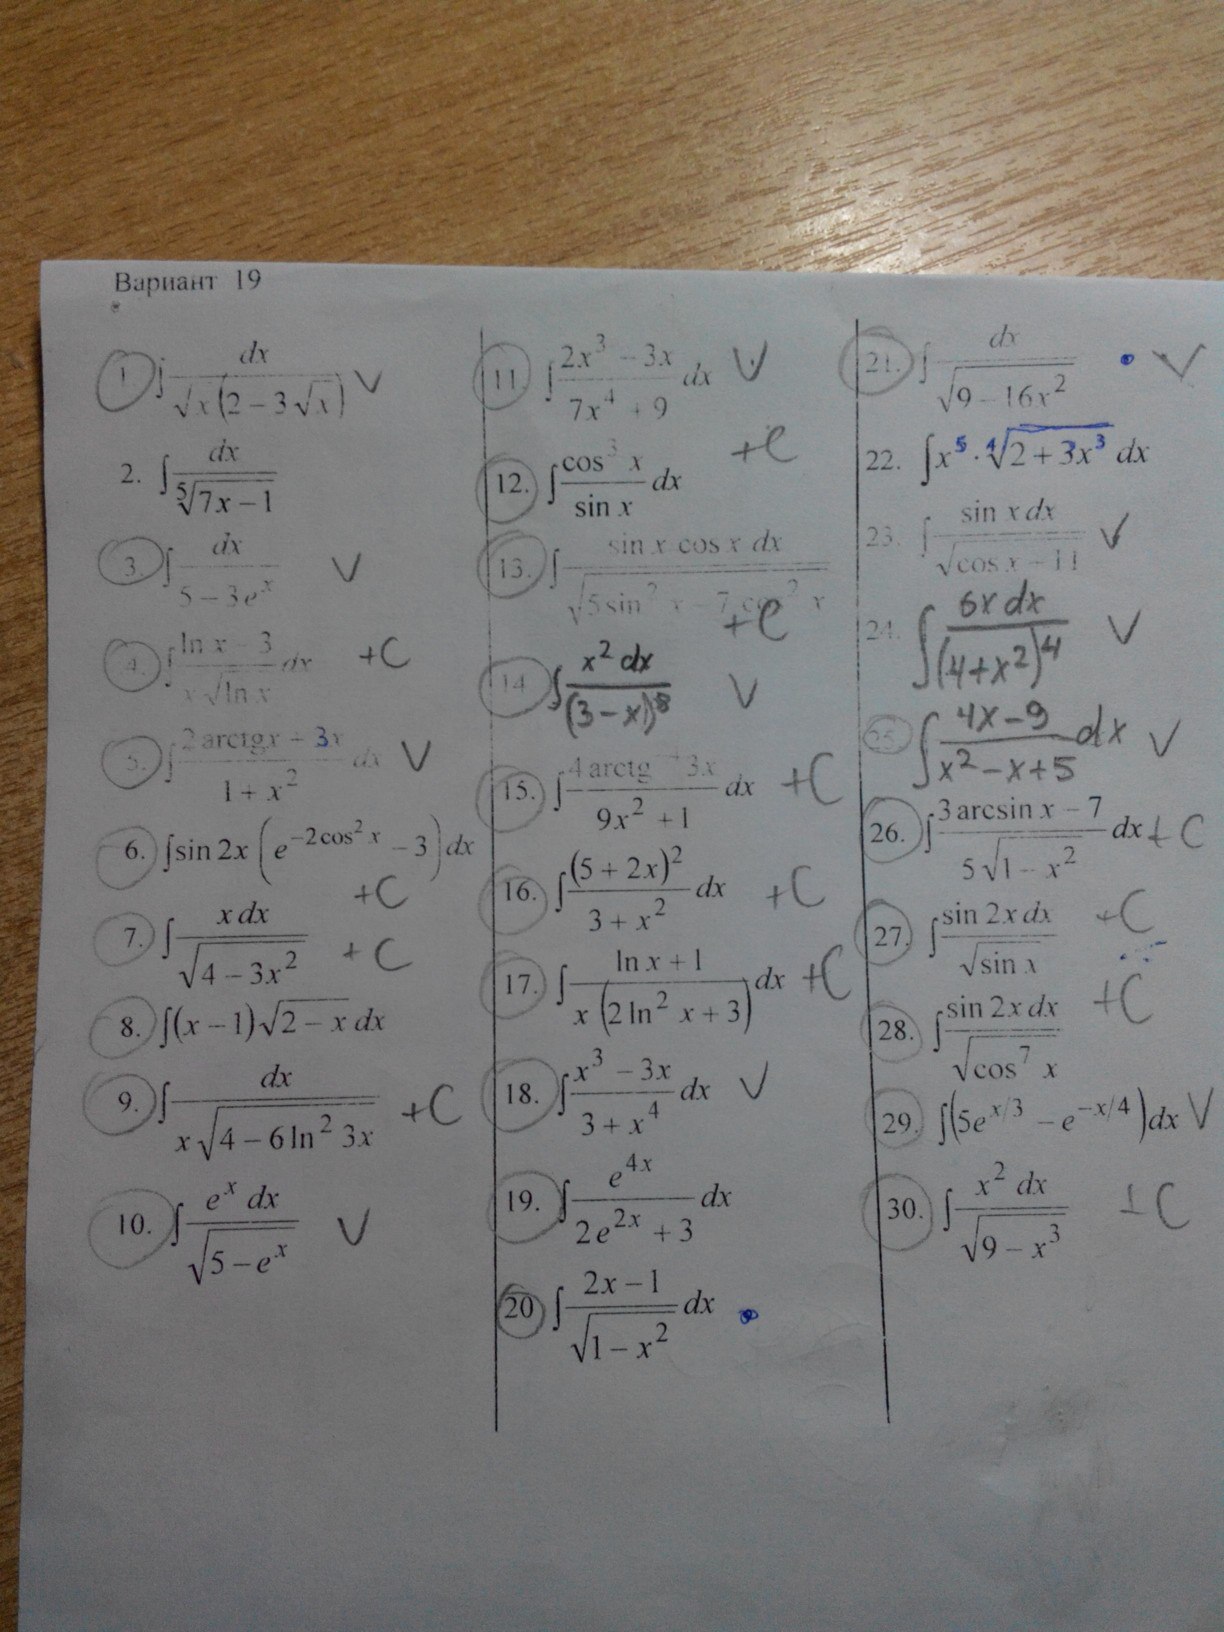 Вариант 19
1. ∫ dx / (√x(2 − 3√x)) V
2. ∫ dx / ⁵√(7x − 1)
3. ∫ dx / (5 − 3e^x) V
4. ∫ (ln x 3) / (x √(ln x)) dx +C
5. ∫ (2 arctgx − 3x) / (1 + x²) dx V
6. ∫ sin 2x (e^(−2cos² x) − 3) dx
+C
7. ∫ x dx / √(4 − 3x²) +C
8. ∫ (x − 1)√(2 − x) dx
9. ∫ dx / (x√(4 − 6 ln² 3x)) +C
10. ∫ e^x dx / √(5 − e^x) V
11. ∫ (2x³ − 3x) / (7x⁴ + 9) dx V
12. ∫ cos³ x / sin x dx +C
13. ∫ sin x cos x dx / √(5 sin² x − 7 cos² x)
+C
14. ∫ x² dx / (3 − x)⁸ V
15. ∫ 4 arctg 3x / (9x² + 1) dx +C
16. ∫ (5 + 2x)² / (3 + x²) dx +C
17. ∫ (ln x + 1) / (x (2 ln² x + 3)) dx +C
18. ∫ (x³ − 3x) / (3 + x⁴) dx V
19. ∫ e^(4x) / (2e^(2x) + 3) dx
20 ∫ (2x − 1) / √(1 − x²) dx
21. ∫ dx / √(9 − 16x²) V
22. ∫ x⁵ · ⁴√(2 + 3x³) dx
23. ∫ sin x dx / √(cos x − 11) V
24. ∫ 6x dx / (4 + x²)⁴ V
25. ∫ (4x − 9) / (x² − x + 5) dx V
26. ∫ (3 arcsin x − 7) / (5√(1 − x²)) dx +C
27. ∫ sin 2x dx / √(sin x) +C
28. ∫ sin 2x dx / √(cos⁷ x) +C
29. ∫ (5e^(x/3) − e^(−x/4)) dx V
30. ∫ x² dx / √(9 − x³) +C